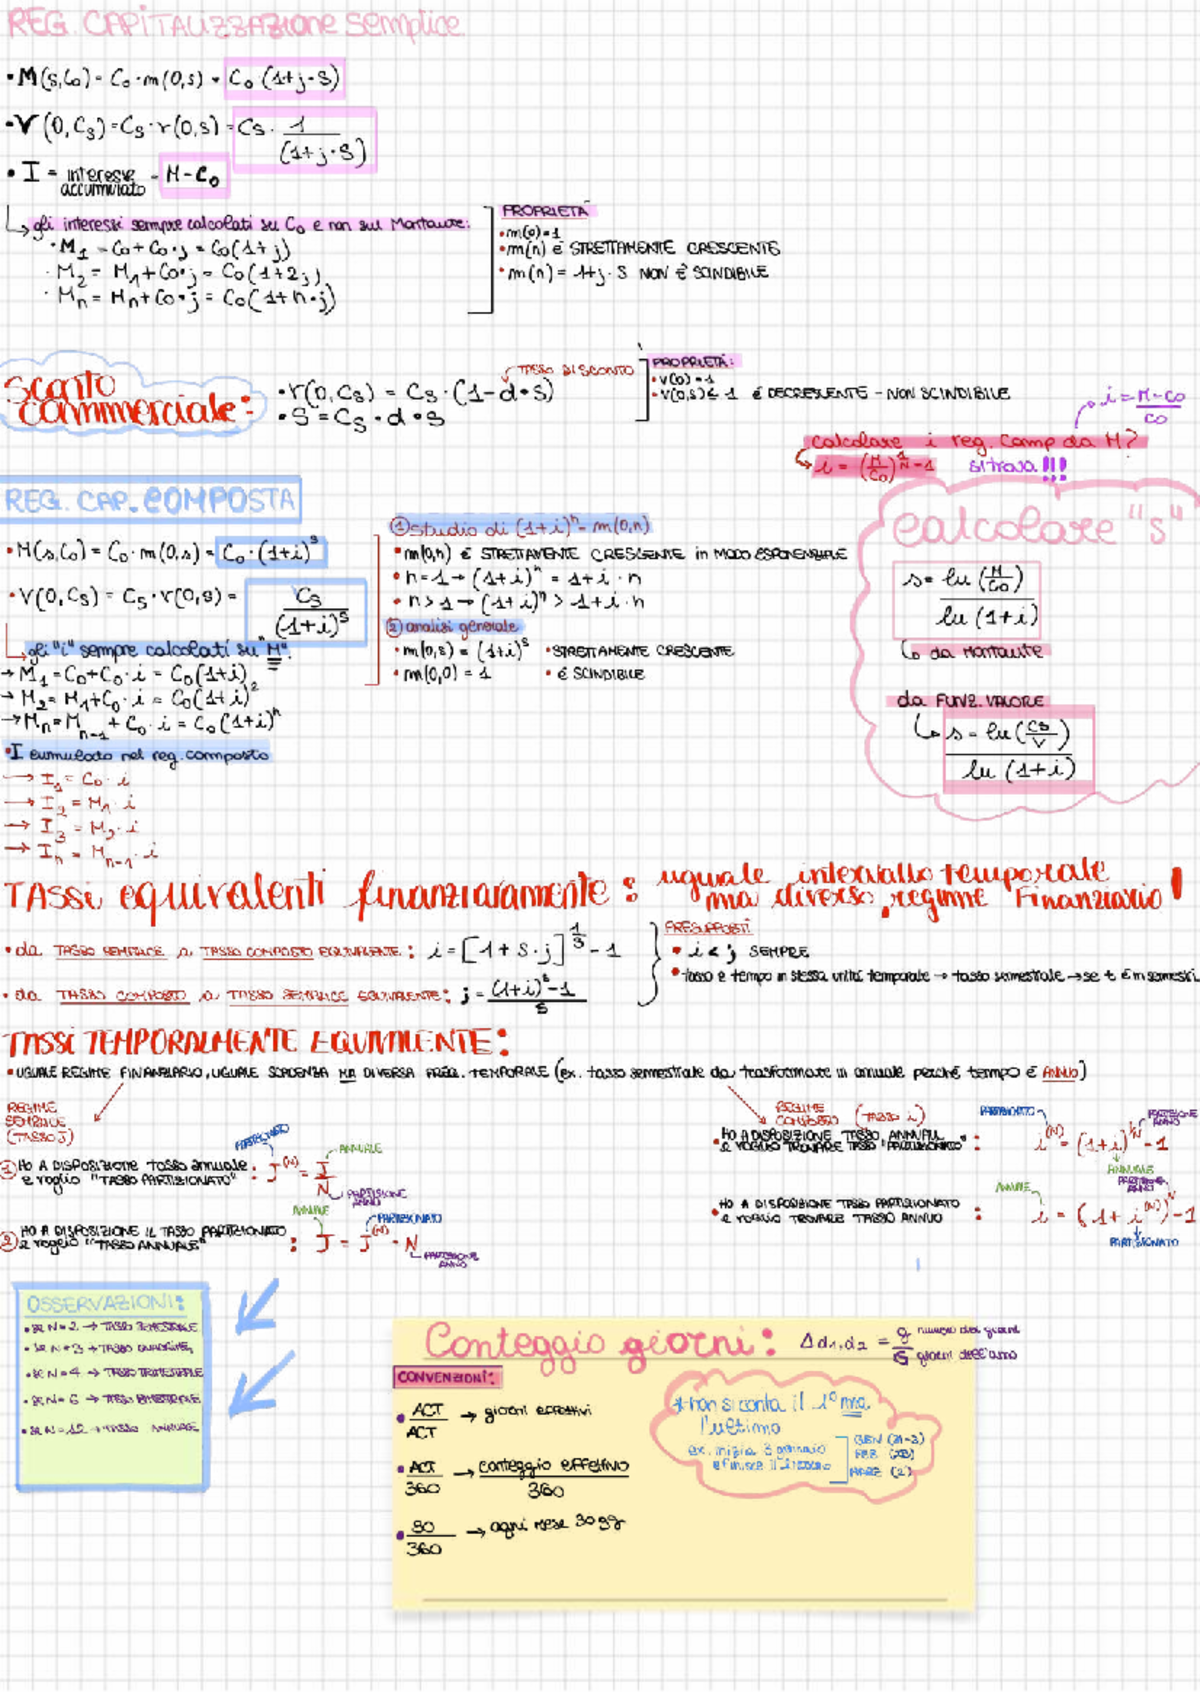 REG. CAPITALIZZAZIONE semplice
• M(s,C₀) = C₀ · m(0,s) = C₀ (1+j·s)
• V(0,Cs) = Cs · r(0,s) = Cs · 1/(1+j·s)
• I = interesse accumulato = M - C₀
↳ gli interessi sempre calcolati su C₀ e non sul Montante:
· M₁ = C₀ + C₀·j = C₀(1+j)
· M₂ = M₁ + C₀·j = C₀(1+2j)
· Mn = Mn + C₀·j = C₀(1+n·j)
PROPRIETÀ
• m(0)=1
• m(n) è STRETTAMENTE CRESCENTE
• m(n) = 1+j·s NON È SCINDIBILE
Sconto commerciale:
• V(0,Cs) = Cs · (1-d·s)
TASSO DI SCONTO
• S = Cs · d · s
PROPRIETÀ:
• V(0) = 1
• V(0,s) ≤ 1 è DECRESCENTE - NON SCINDIBILE
i = M-C₀/C₀
calcolare i reg. Comp da M?
↳ i = (M/C₀)^1/N - 1 si trova !!!
REG. CAP. COMPOSTA
• M(s,C₀) = C₀ · m(0,s) = C₀ · (1+i)^s
• V(0,Cs) = Cs · r(0,s) = Cs/(1+i)^s
↳ gli "i" sempre calcolati su "M".
→ M₁ = C₀+C₀·i = C₀(1+i)
→ M₂ = M₁+C₀·i = C₀(1+i)²
→ Mn = Mn-1 + C₀·i = C₀(1+i)^n
• I cumulato nel reg. composto
→ I₁ = C₀·i
→ I₂ = M₁·i
→ I₃ = M₂·i
→ In = Mn-1·i
① studio di (1+i)^n = m(0,n)
• m(0,n) è STRETTAMENTE CRESCENTE in MODO ESPONENZIALE
• n=1 → (1+i)^n = 1+i·n
• n>1 → (1+i)^n > 1+i·n
② analisi generale
• m(0,s) = (1+i)^s • STRETTAMENTE CRESCENTE
• m(0,0) = 1 • è SCINDIBILE
calcolare "s"
s = ln (M/C₀) / ln (1+i)
↳ da Montante
da FUNZ. VALORE
↳ s = ln (Cs/V) / ln (1+i)
TASSI equivalenti finanziariamente: uguale intervallo temporale
ma diverso regime Finanziario!
• da TASSO SEMPLICE a TASSO COMPOSTO EQUIVALENTE: i = [1+s·j]^1/s - 1
• da TASSO COMPOSTO a TASSO SEMPLICE EQUIVALENTE: j = (1+i)^s-1 / s
PRESUPPOSTI
• i < j SEMPRE
• tasso e tempo in stessa unità temporale → tasso semestrale → se t è in semestri
TASSI TEMPORALMENTE EQUIVALENTE:
• UGUALE REGIME FINANZIARIO, UGUALE SCADENZA MA DIVERSA FREQ. TEMPORALE (ex. tasso semestrale da trasformare in annuale perché tempo è ANNUO)
REGIME SEMPLICE (TASSO J)
① HO A DISPOSIZIONE tasso annuale e voglio "TASSO PARTIZIONATO" : J^(N) = J/N
PARTIZIONATO
ANNUALE
PARTIZIONE ANNO
② HO A DISPOSIZIONE IL TASSO PARTIZIONATO e voglio "TASSO ANNUALE" : J = J^(N) · N
ANNUALE
PARTIZIONATO
PARTIZIONE ANNO
REGIME COMPOSTO (TASSO i)
HO A DISPOSIZIONE TASSO ANNUAL e VOGLIO TROVARE TASSO "PARTIZIONATO" : i^(N) = (1+i)^1/N - 1
PARTIZIONATO
PARTIZIONE ANNO
ANNUALE
• HO A DISPOSIZIONE TASSO PARTIZIONATO e VOGLIO TROVARE TASSO ANNUO : i = (1+i^(N))^N - 1
ANNUALE
PARTIZIONE ANNO
PARTIZIONATO
OSSERVAZIONI:
• SE N=2 → TASSO SEMESTRALE
• SE N=3 → TASSO QUADRIME.
• SE N=4 → TASSO TRIMESTRALE
• SE N=6 → TASSO BIMESTRALE
• SE N=12 → TASSO
Conteggio giorni: Δd₁,d₂ = g/G
numero dei giorni
giorni dell'anno
CONVENZIONI:
• ACT/ACT → giorni effettivi
• ACT/360 → conteggio effettivo/360
• 30/360 → ogni mese 30 gg
* non si conta il 1° ma l'ultimo
ex. inizia 3 gennaio
e finisce il 2 marzo
GEN (31-3)
FEB (28)
MARZ (2)